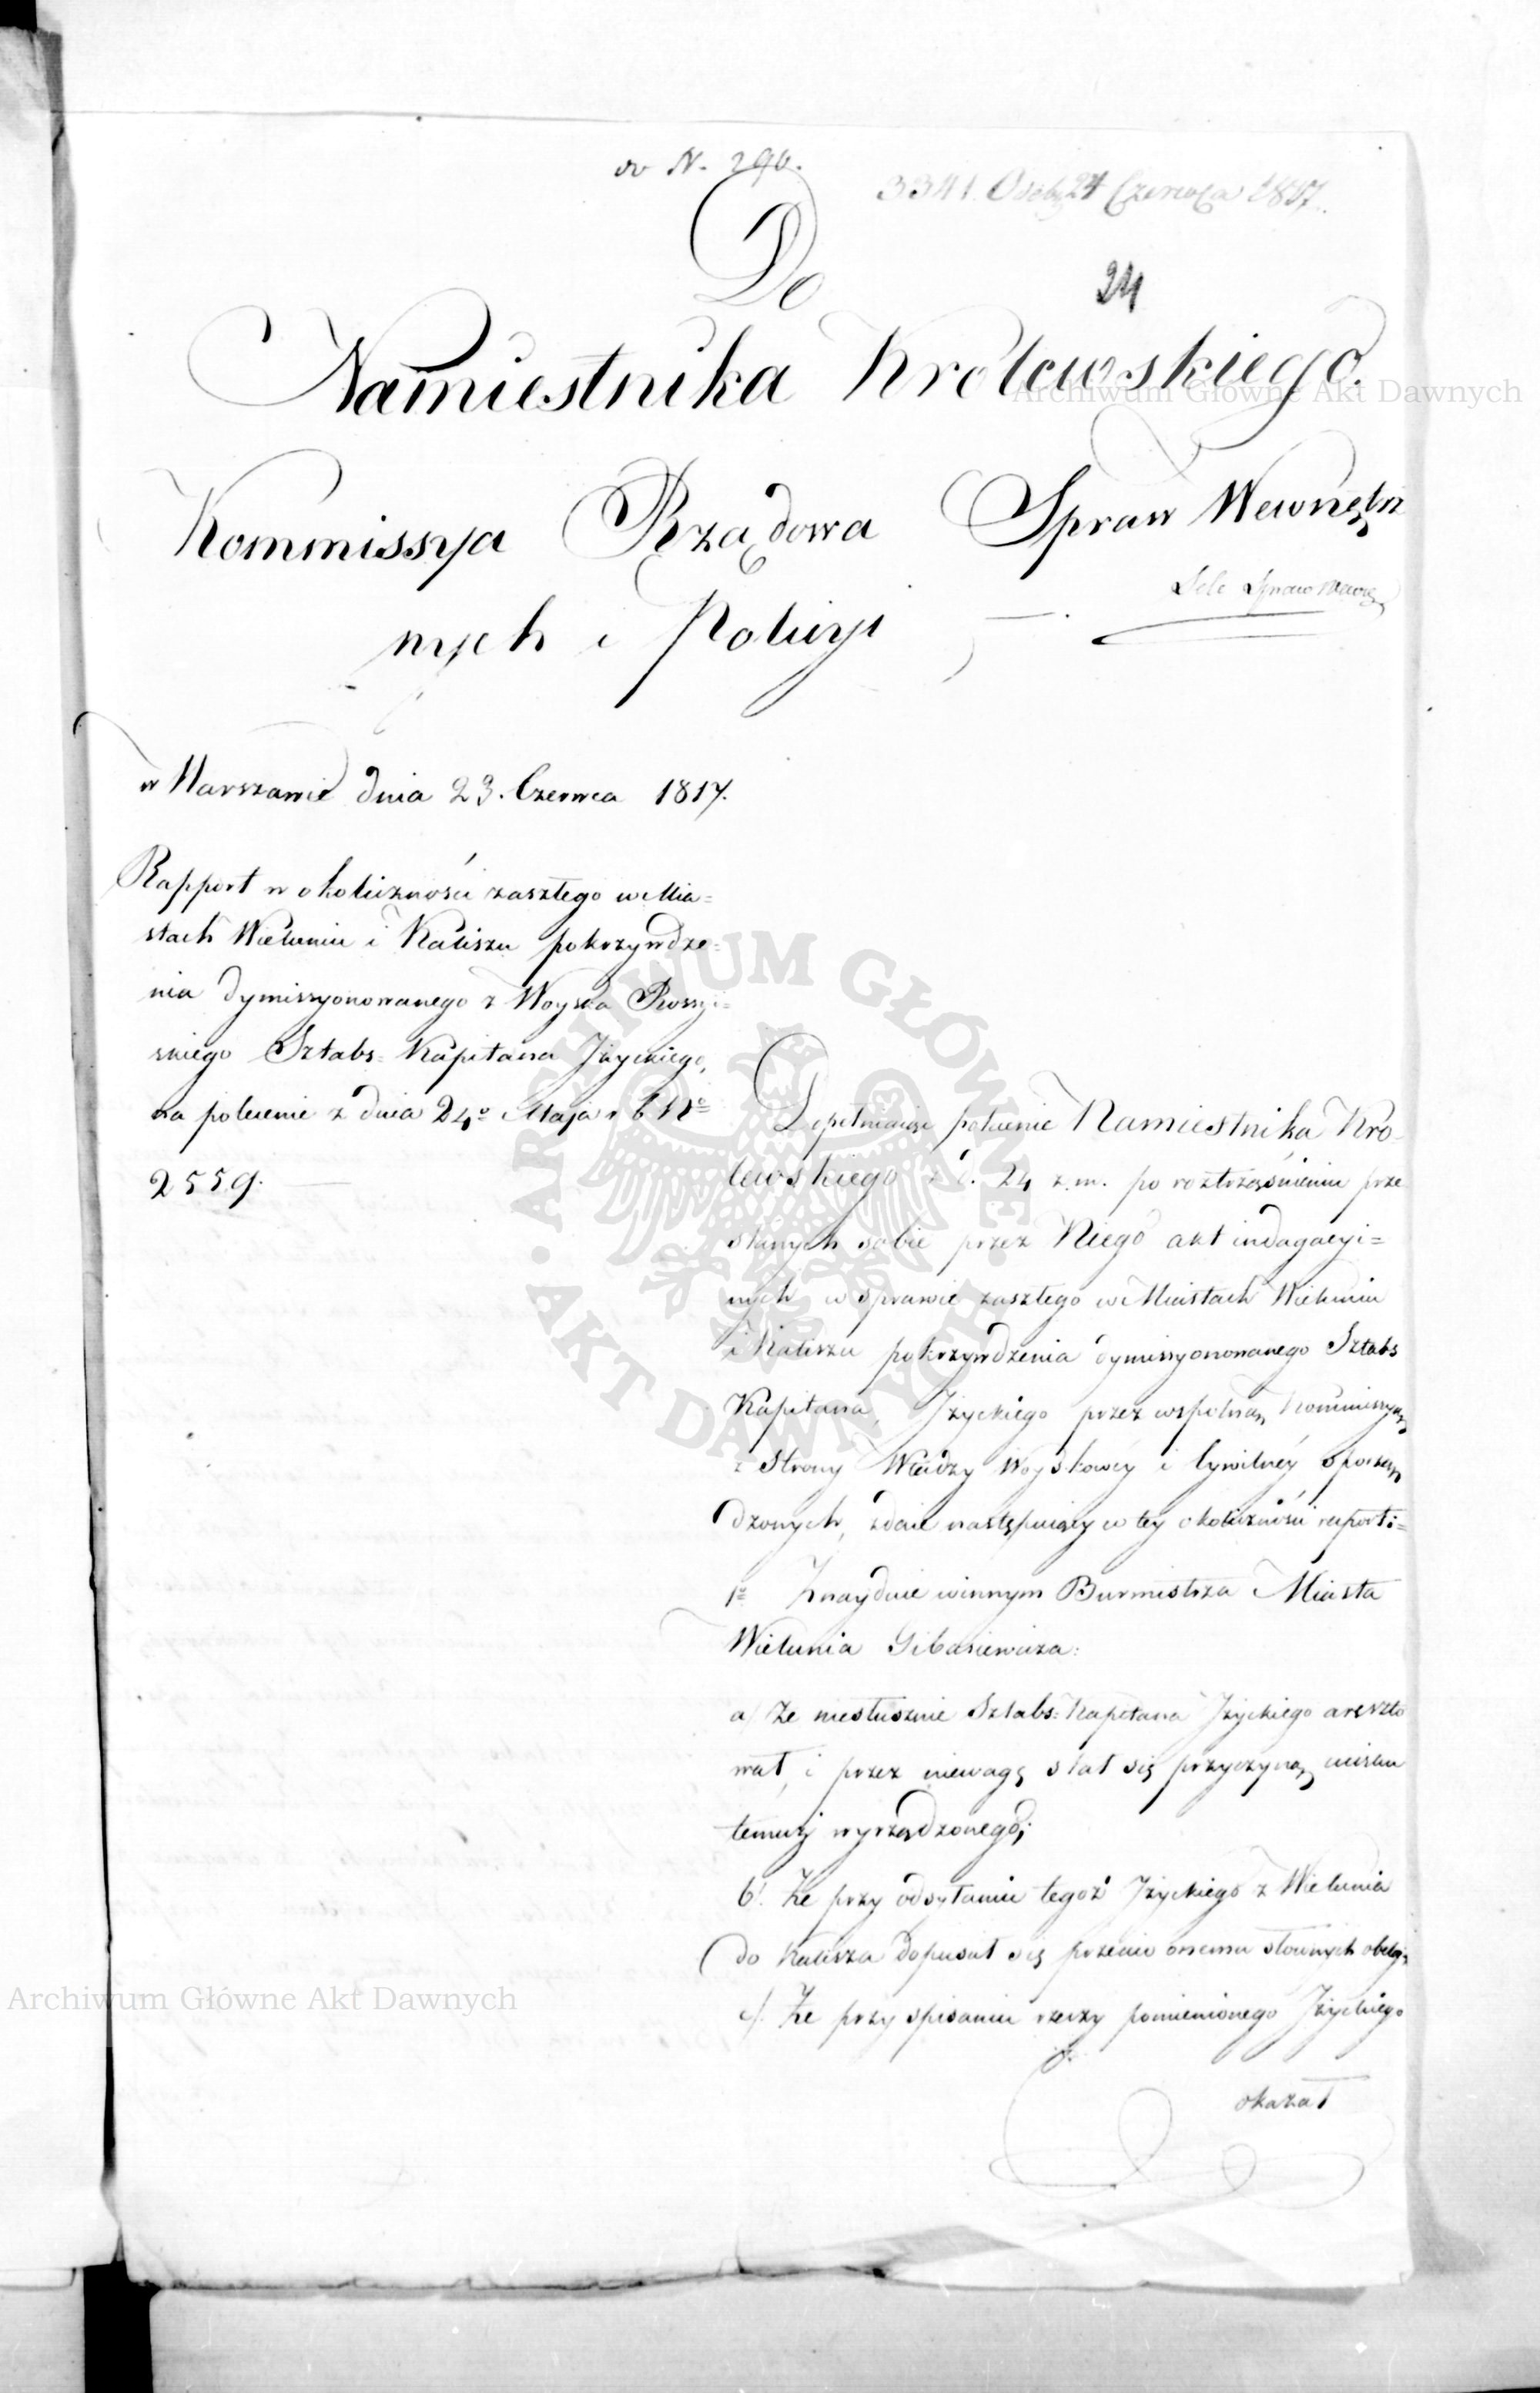 do N. 296.
3341 Odeb. 24 Czerwca 1817.
Do
24
Namiestnika Królewskiego.
Kommissya Rządowa Spraw Wewnętrz
nych i Policyi
Spraw Wewn.
w Warszawie dnia 23. Czerwca 1817.
Rapport w okoliczności zaszłego w Mia=
stach Wieluniu i Kaliszu pokrzywdze=
nia dymissyonowanego z Woyska Rossyi=
skiego Sztabs=Kapitana Jżyckiego,
na polecenie z dnia 24º Maja r b Nº
2559.
Dopełniaiąc polecenie Namiestnika Kró-
lewskiego z d. 24 z.m. po roztrząśnieniu prze
słanych sobie przez Niego akt indagacyi=
nych w sprawie zaszłego w Miastach Wieluniu
i Kaliszu pokrzywdzenia dymissyonowanego Sztabs
Kapitana, Jżyckiego przez wspólną Kommissyą
z strony Władzy Woyskowéy i Cywilnéy sporzą
dzonych, zdaie następuiący w tey okoliczności raport:=
1º Znayduie winnym Burmistrza Miasta
Wielunia Gibasiewicza:
a/ Że niesłusznie Sztabs=Kapitana Jżyckiego areszto
wał, i przez niewagę stał się przyczyną ucisku
temuż wyrządzonego;
b/. Że przy odsyłaniu tegoż Jżyckiego z Wielunia
do Kalisza dopuścił się przeciw onemu słownych obelg,
c/. Że przy spisaniu rzeczy pomienionego Jżyckiego
okazał
ARCHIWUM GŁÓWNE AKT DAWNYCH
Archiwum Główne Akt Dawnych
Archiwum Główne Akt Dawnych